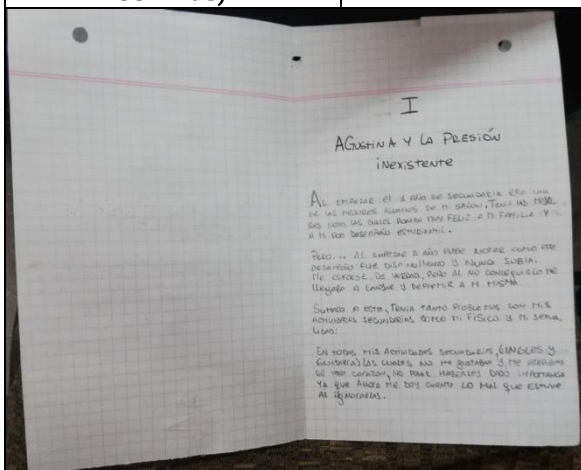 I
AGUSTINA Y LA PRESIÓN
INEXISTENTE
AL EMPEZAR EL 1 AÑO DE SECUNDARIA ERA UNA
DE LAS MEJORES ALUMNAS DE MI SALON, TENIA LAS MEJO
RES NOTAS LAS CUALES PONIAN MUY FELIZ A MI FAMILIA Y
A MI POR DESEMPEÑO ESTUDIANTIL.
PERO... AL EMPEZAR 2 AÑO PUDE NOTAR COMO ESE
DESEMPEÑO FUE DISMINUYENDO Y NUNCA SUBIA.
ME ESFORSE, DE VERDAD, PERO AL NO CONSEGUIRLO ME
LLEGABA A ENOJAR Y DEPRIMIR A MI MISMA.
SUMADO A ESTO, TENIA TANTO PROBLEMAS CON MIS
ACTIVIDADES SECUNDARIAS COMO MI FISICO Y MI SEXUA
LIDAD.
EN TODAS MIS ACTIVIDADES SECUNDARIAS, (INGLES Y
GUITARRA) LAS CUALES NO ME GUSTABAN Y, ME
DE TODO CORAZON, NO PODER HABERLES DADO IMPORTANCIA
YA QUE AHORA ME DOY CUENTA LO MAL QUE ESTUVE
AL IGNORARLAS.